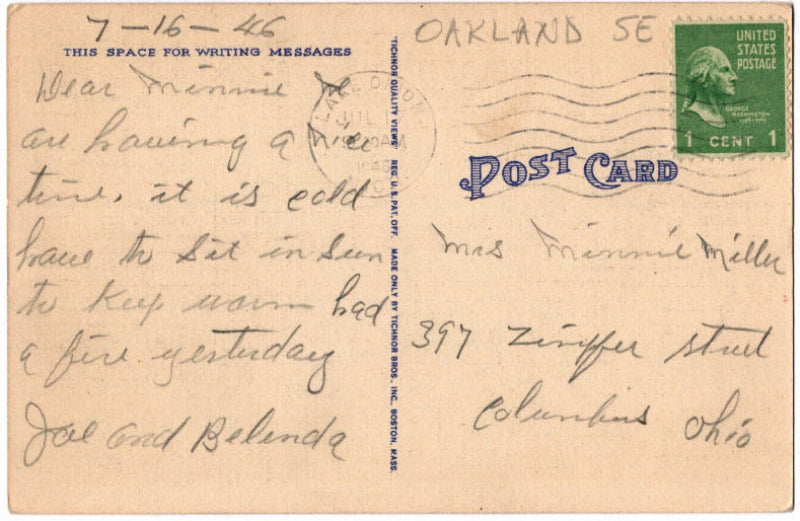 7-16-46
THIS SPACE FOR WRITING MESSAGES
Dear Minnie We
are having a nice
time, it is cold
have to sit in sun
to keep warm had
a fire yesterday
Joe and Belenda
"TICHNOR QUALITY VIEWS" REG. U.S. PAT. OFF. MADE ONLY BY TICHNOR BROS., INC., BOSTON, MASS.
OAKLAND SE
LAKE ORION
JUL
AM
1946
UNITED
STATES
POSTAGE
GEORGE
WASHINGTON
1 CENT 1
POST CARD
Mrs Minnie Miller
397 Zimpfer street
Columbus Ohio